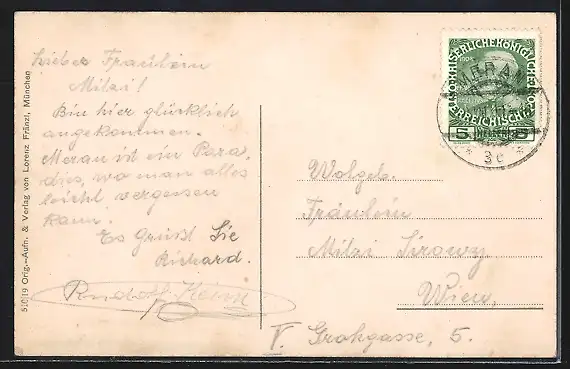 Lieber Fräulein
Mitzi!
Bin hier glücklich
angekommen.
Meran ist ein Para,
dies, wo man alles
leicht vergessen
kann.
Es Grüßt Sie
Richard.
Rudolf
510/19 Orig.-Aufn. & Verlag von Lorenz Fränzl, München
KAISERLICHE KÖNIGLICHE
ÖSTERREICHISCHE
5 HELLER 5
MERAN
* 3c *
Wolgeb.
Fräulein
Mitzi Sirowy
Wien,
V. Grohgasse, 5.